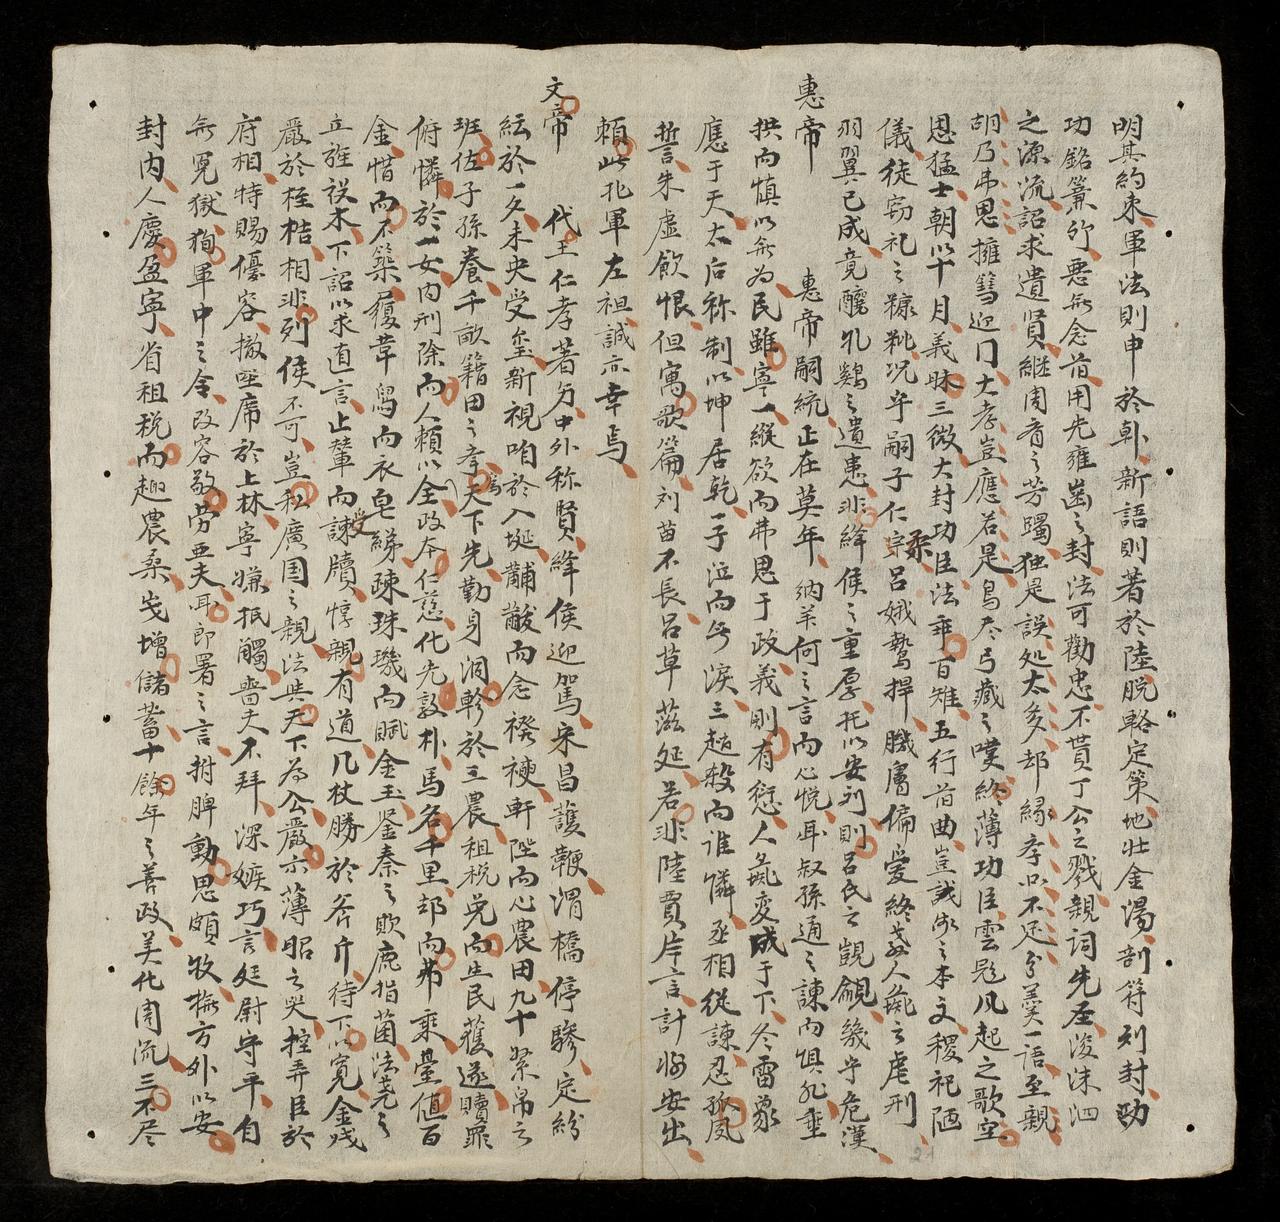 明其約束軍法則申於韩新語則著於陸脱輅定策地壮金湯剖符列封功
功銘簾竹悪無念首用先雍齒之封法可勸忠不貰丁公之戮親祠先圣浚洙泗
之源流詔求遺賢継周脊之芳躅独是誤処太多却縁孝不足分羹一語至親
胡乃弗思擁篲迎门大孝豈應若是鳥尽弓藏之嘆終薄功臣雲飛风起之歌空
思猛士朝以十月義昧三微大封功臣法乖百雉五行首曲豈誠敬之本文稷祀陋
儀徒窃礼之糠粃况乎嗣子仁柔吕娥鷙捍戚膚偏爱終募人彘之虐刑
羽翼已成竟釀乳鷄之遺患非絳侯之重厚托以安刘則吕氏之覬覦幾乎危漢
惠帝　惠帝嗣統正在莫年納羊何之言而心悦耳叔孫通之諫而惧孔垂
拱而慎以無为民雖寧一縱欲而弗思于政義則有愆人彘变成于下冬雷象
應于天太后称制以坤居乾一子泣而無淚三趙殺而谁憐丞相従諫忍孤夙
誓朱虚飲恨但寓歌篇刘苗不長吕草滋延若非陸賈片言計將安出
頼此北軍左袒誠亦幸焉
文帝　代王仁孝著分中外称賢絳侯迎駕宋昌護鞭渭橋停驂定紛
紜於一夕未央受玺新視咱於入埏黼黻而念襁褓軒陛而心農田九十絮帛云
班佐子孫養千畝籍田之孝為天下先勤身涧軫於三農租税免而生民蒦遂贖罪
俯憐於一女肉刑除而人頼以全政夲仁慈化先敦朴馬名千里却而弗乘臺值百
金惜而不築履革舄而衣皂綈疎珠璣而賦金玉鉴秦之欺鹿指菌法堯之
立旌设木下詔以求直言止輦而受諫牘惇親有道几杖勝於斧斤待下以寛金戋
嚴於桎梏相非列侯不可豈私廣国之親法共天下為公嚴示薄昭之哭控弄臣於
府相特賜優容撤坐席於上林寧嫌抵觸嗇夫不拜深嫉巧言廷尉守平自
無冤獄狥軍中之令改容敬劳亜夫耳郎署之言拊脾動思頗牧撫方外以安
封内人慶盈寧省租税而趣農桑岁增儲蓄十餘年之善政美化周流三不尽
21